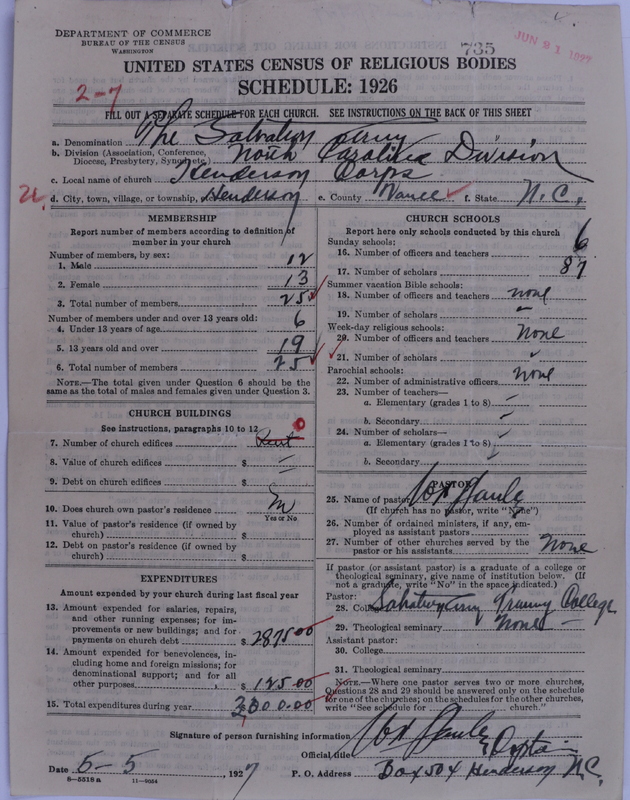 DEPARTMENT OF COMMERCE
BUREAU OF THE CENSUS
WASHINGTON
735
JUN 21 1927
UNITED STATES CENSUS OF RELIGIOUS BODIES
SCHEDULE: 1926
2-7
FILL OUT A SEPARATE SCHEDULE FOR EACH CHURCH. SEE INSTRUCTIONS ON THE BACK OF THIS SHEET
a. Denomination The Salvation Army
b. Division (Association, Conference, Diocese, Presbytery, Synod, etc.) North Carolina Division
c. Local name of church Henderson Corps
d. City, town, village, or township, Henderson e. County Vance f. State N.C.
MEMBERSHIP
Report number of members according to definition of
member in your church
Number of members, by sex:
1. Male 12
2. Female 13
3. Total number of members 25
Number of members under and over 13 years old:
4. Under 13 years of age 6
5. 13 years old and over 19
6. Total number of members 25
NOTE.—The total given under Question 6 should be the
same as the total of males and females given under Question 3.
CHURCH BUILDINGS
See instructions, paragraphs 10 to 12
7. Number of church edifices Rent 0
8. Value of church edifices $ —
9. Debt on church edifices $
10. Does church own pastor's residence
Yes or No
11. Value of pastor's residence (if owned by
church) $
12. Debt on pastor's residence (if owned by
church) $
EXPENDITURES
Amount expended by your church during last fiscal year
13. Amount expended for salaries, repairs,
and other running expenses; for im-
provements or new buildings; and for
payments on church debt $ 2875 00
14. Amount expended for benevolences, in-
cluding home and foreign missions; for
denominational support; and for all
other purposes $ 125 00
15. Total expenditures during year 3000.00
CHURCH SCHOOLS
Report here only schools conducted by this church
Sunday schools:
16. Number of officers and teachers 6
17. Number of scholars 87
Summer vacation Bible schools:
18. Number of officers and teachers none
19. Number of scholars "
Week-day religious schools:
20. Number of officers and teachers None
21. Number of scholars "
Parochial schools:
22. Number of administrative officers none
23. Number of teachers—
a. Elementary (grades 1 to 8)
b. Secondary
24. Number of scholars—
a. Elementary (grades 1 to 8)
b. Secondary
PASTOR
25. Name of pastor
(If church has no pastor, write "None")
26. Number of ordained ministers, if any, em-
ployed as assistant pastors
27. Number of other churches served by the
pastor or his assistants None
If pastor (or assistant pastor) is a graduate of a college or
theological seminary, give name of institution below. (If
not a graduate, write "No" in the space indicated.)
Pastor:
28. College Salvation Army Training College
29. Theological seminary None —
Assistant pastor:
30. College
31. Theological seminary
NOTE.—Where one pastor serves two or more churches,
Questions 28 and 29 should be answered only on the schedule
for one of the churches; on the schedules for the other churches,
write "See schedule for church."
Signature of person furnishing information
Official title Captain
Date 5-5, 1927 P. O. Address Box 504 Henderson N.C.
8-5518a 11-9054